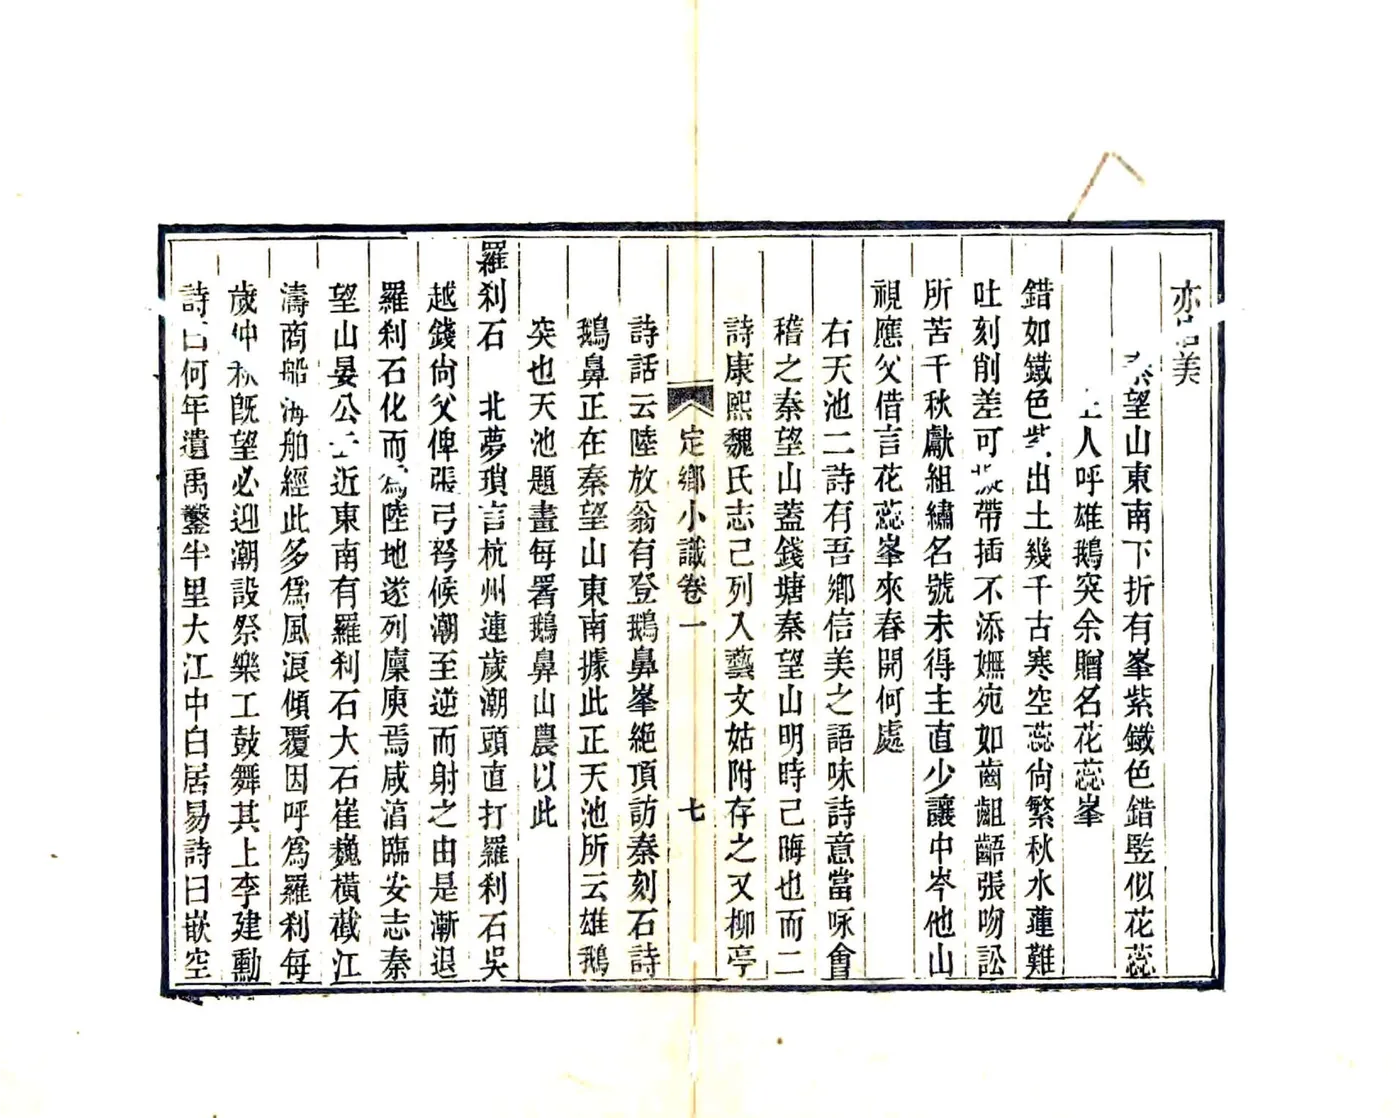 亦信美
秦望山東南下折有峯紫鐵色錯竪似花蕊
土人呼雄鵝突余贈名花蕊峯
錯如鐵色紫出土幾千古寒空蕊尙繁秋水蓮難
吐刻削差可擬帶插不添嫵宛如齒齟齬張吻訟
所苦千秋獻組繡名號未得主直少讓中岑他山
視應父借言花蕊峯來春開何處
右天池二詩有吾鄉信美之語味詩意當咏會
稽之秦望山蓋錢塘秦望山明時已晦也而二
詩康熙魏氏志已列入藝文姑附存之又柳亭
定鄉小識卷一
七
詩話云陸放翁有登鵝鼻峯絶頂訪秦刻石詩
鵝鼻正在秦望山東南據此正天池所云雄鵝
突也天池題畫每署鵝鼻山農以此
羅刹石 北夢瑣言杭州連歲潮頭直打羅刹石吳
越錢尙父俾張弓弩候潮至逆而射之由是漸退
羅刹石化而爲陸地遂列廩庾焉咸淳臨安志秦
望山晏公云近東南有羅刹石大石崔巍橫截江
濤商船海舶經此多爲風浪傾覆因呼爲羅刹每
歲仲秋旣望必迎潮設祭樂工鼓舞其上李建勳
詩曰何年遺禹鑿半里大江中白居易詩曰嵌空